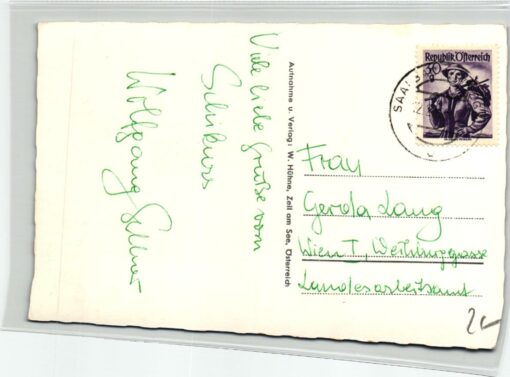 Viele liebe Grüße vom
Schikurs
Wolfgang
Aufnahme u. Verlag: W. Hühne, Zell am See, Österreich
Republik Österreich
SAAL
Frau
Gerda Lang
Wien I, Weihburggasse
Landesarbeitsamt
2€